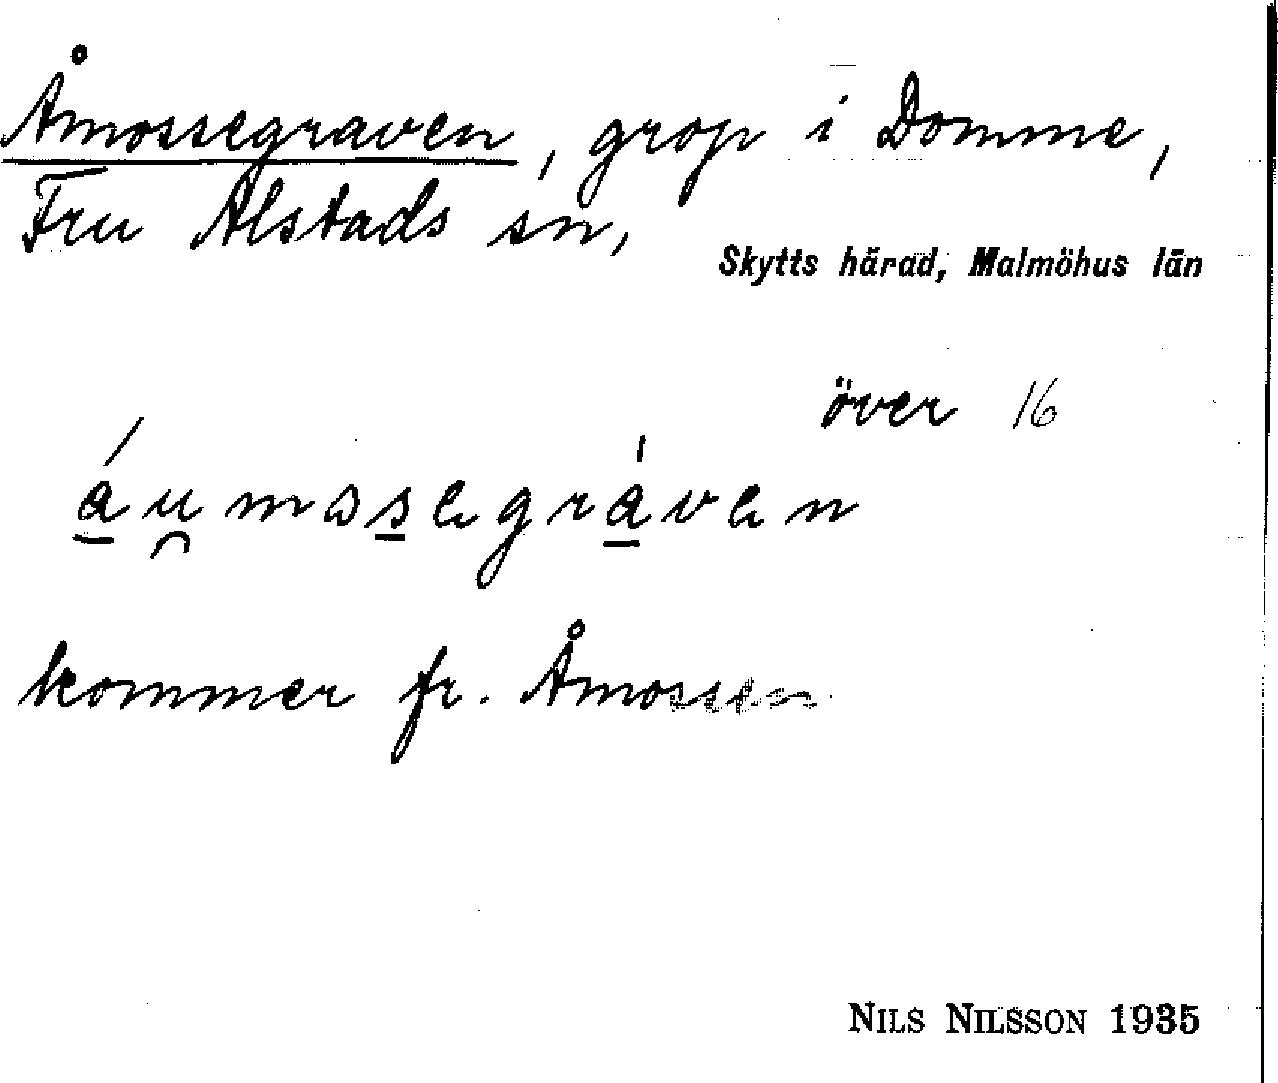 Åmossegraven, grop i Domme,
Fru Alstads sn,
Skytts härad, Malmöhus län
över 16
áu̯mɔsegràven
kommer fr. Åmossen
NILS NILSSON 1935